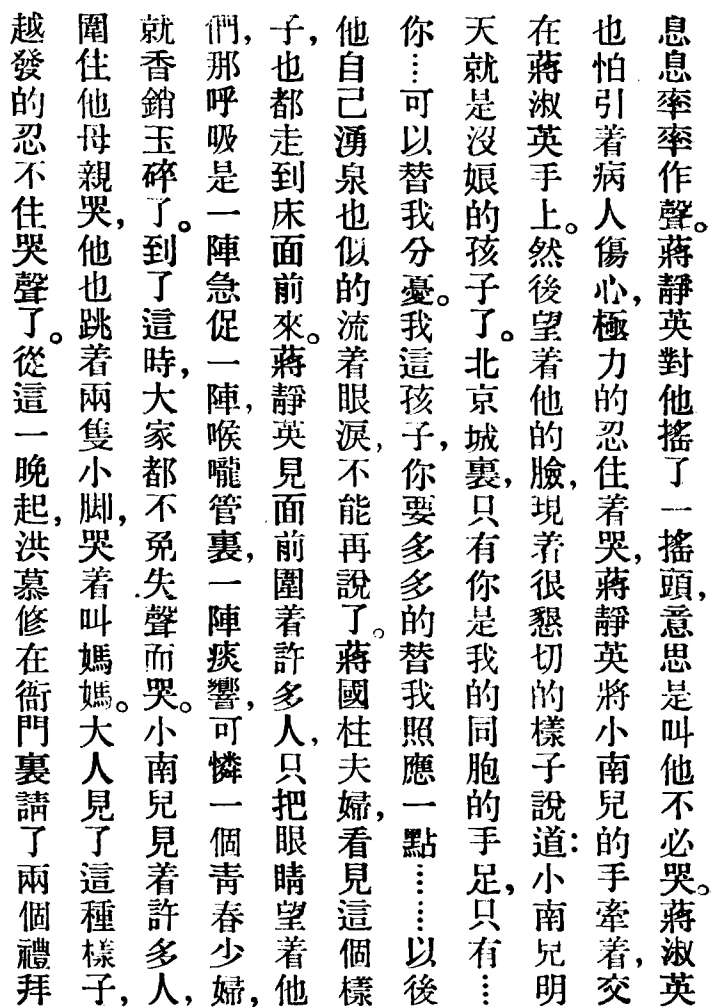 息息率率作聲。蔣靜英對他搖了一搖頭，意思是叫他不必哭。蔣淑英
也怕引着病人傷心，極力的忍住着哭，蔣靜英將小南兒的手牽着，交
在蔣淑英手上。然後望着他的臉，現着很懇切的樣子說道：小南兒明
天就是沒娘的孩子了。北京城裏，只有你是我的同胞的手足，只有……
你……可以替我分憂。我這孩子，你要多多的替我照應一點……以後
他自己湧泉也似的流着眼淚，不能再說了。蔣國柱夫婦，看見這個樣
子，也都走到床面前來。蔣靜英見面前圍着許多人，只把眼睛望着他
們，那呼吸是一陣急促一陣，喉嚨管裏，一陣痰響，可憐一個青春少婦，
就香銷玉碎了。到了這時，大家都不免失聲而哭。小南兒見着許多人，
圍住他母親哭，他也跳着兩隻小脚，哭着叫媽媽。大人見了這種樣子，
越發的忍不住哭聲了。從這一晚起，洪慕修在衙門裏請了兩個禮拜